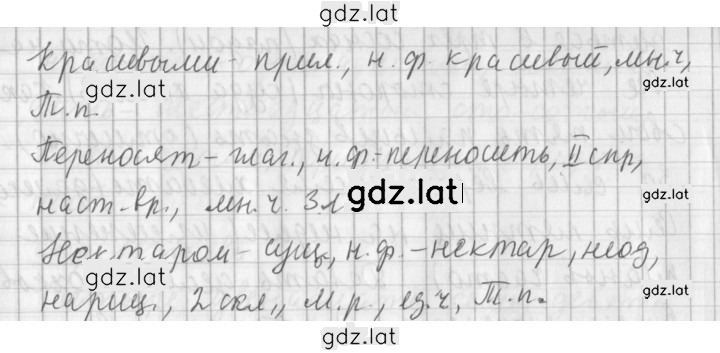 gdz.lat gdz.lat
Красивыми - прил., н. ф. красивый, мн.ч,
gdz.lat gdz.lat
Т.п.
Переносят - глаг., н. ф. - переносить, II спр,
gdz.lat gdz.lat
наст. вр., мн. ч. 3 л
gdz.lat
Нектаром - сущ, н. ф. - нектар, неод,
gdz.lat gdz.lat
нариц., 2 скл., м. р., ед. ч, Т. п.
gdz.lat gdz.lat